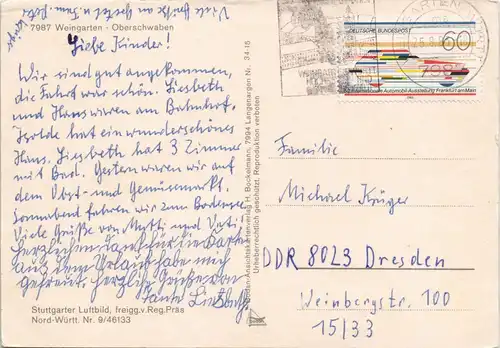 Viele Grüße an
7987 Weingarten - Oberschwaben
Liebe Kinder!
Wir sind gut angekommen,
die Fahrt war schön. Liesbeth
und Hans waren am Bahnhof.
Isolde hat ein wunderschönes
Haus. Liesbeth hat 3 Zimmer
mit Bad. Gestern waren wir auf
dem Obst- und Gemüsemarkt.
Sonnabend fahren wir zum Bodensee.
Viele Grüße von Mutti und Vati!
Herzlichen Dank für die Karte
aus dem Urlaub habe mich
gefreut. herzliche Grüße von
Tante
Stuttgarter Luftbild, freigg.v.Reg.Präs
Nord-Württ. Nr. 9/46133
Ansichtskartenverlag H. Bockelmann, 7994 Langenargen Nr. 34-15
Urheberrechtlich geschützt. Reproduktion verboten
DEUTSCHE BUNDESPOST
60
Internationale Automobil-Ausstellung Frankfurt am Main
Familie
Michael Krüger
DDR 8023 Dresden
Weinbergstr. 100
15/33